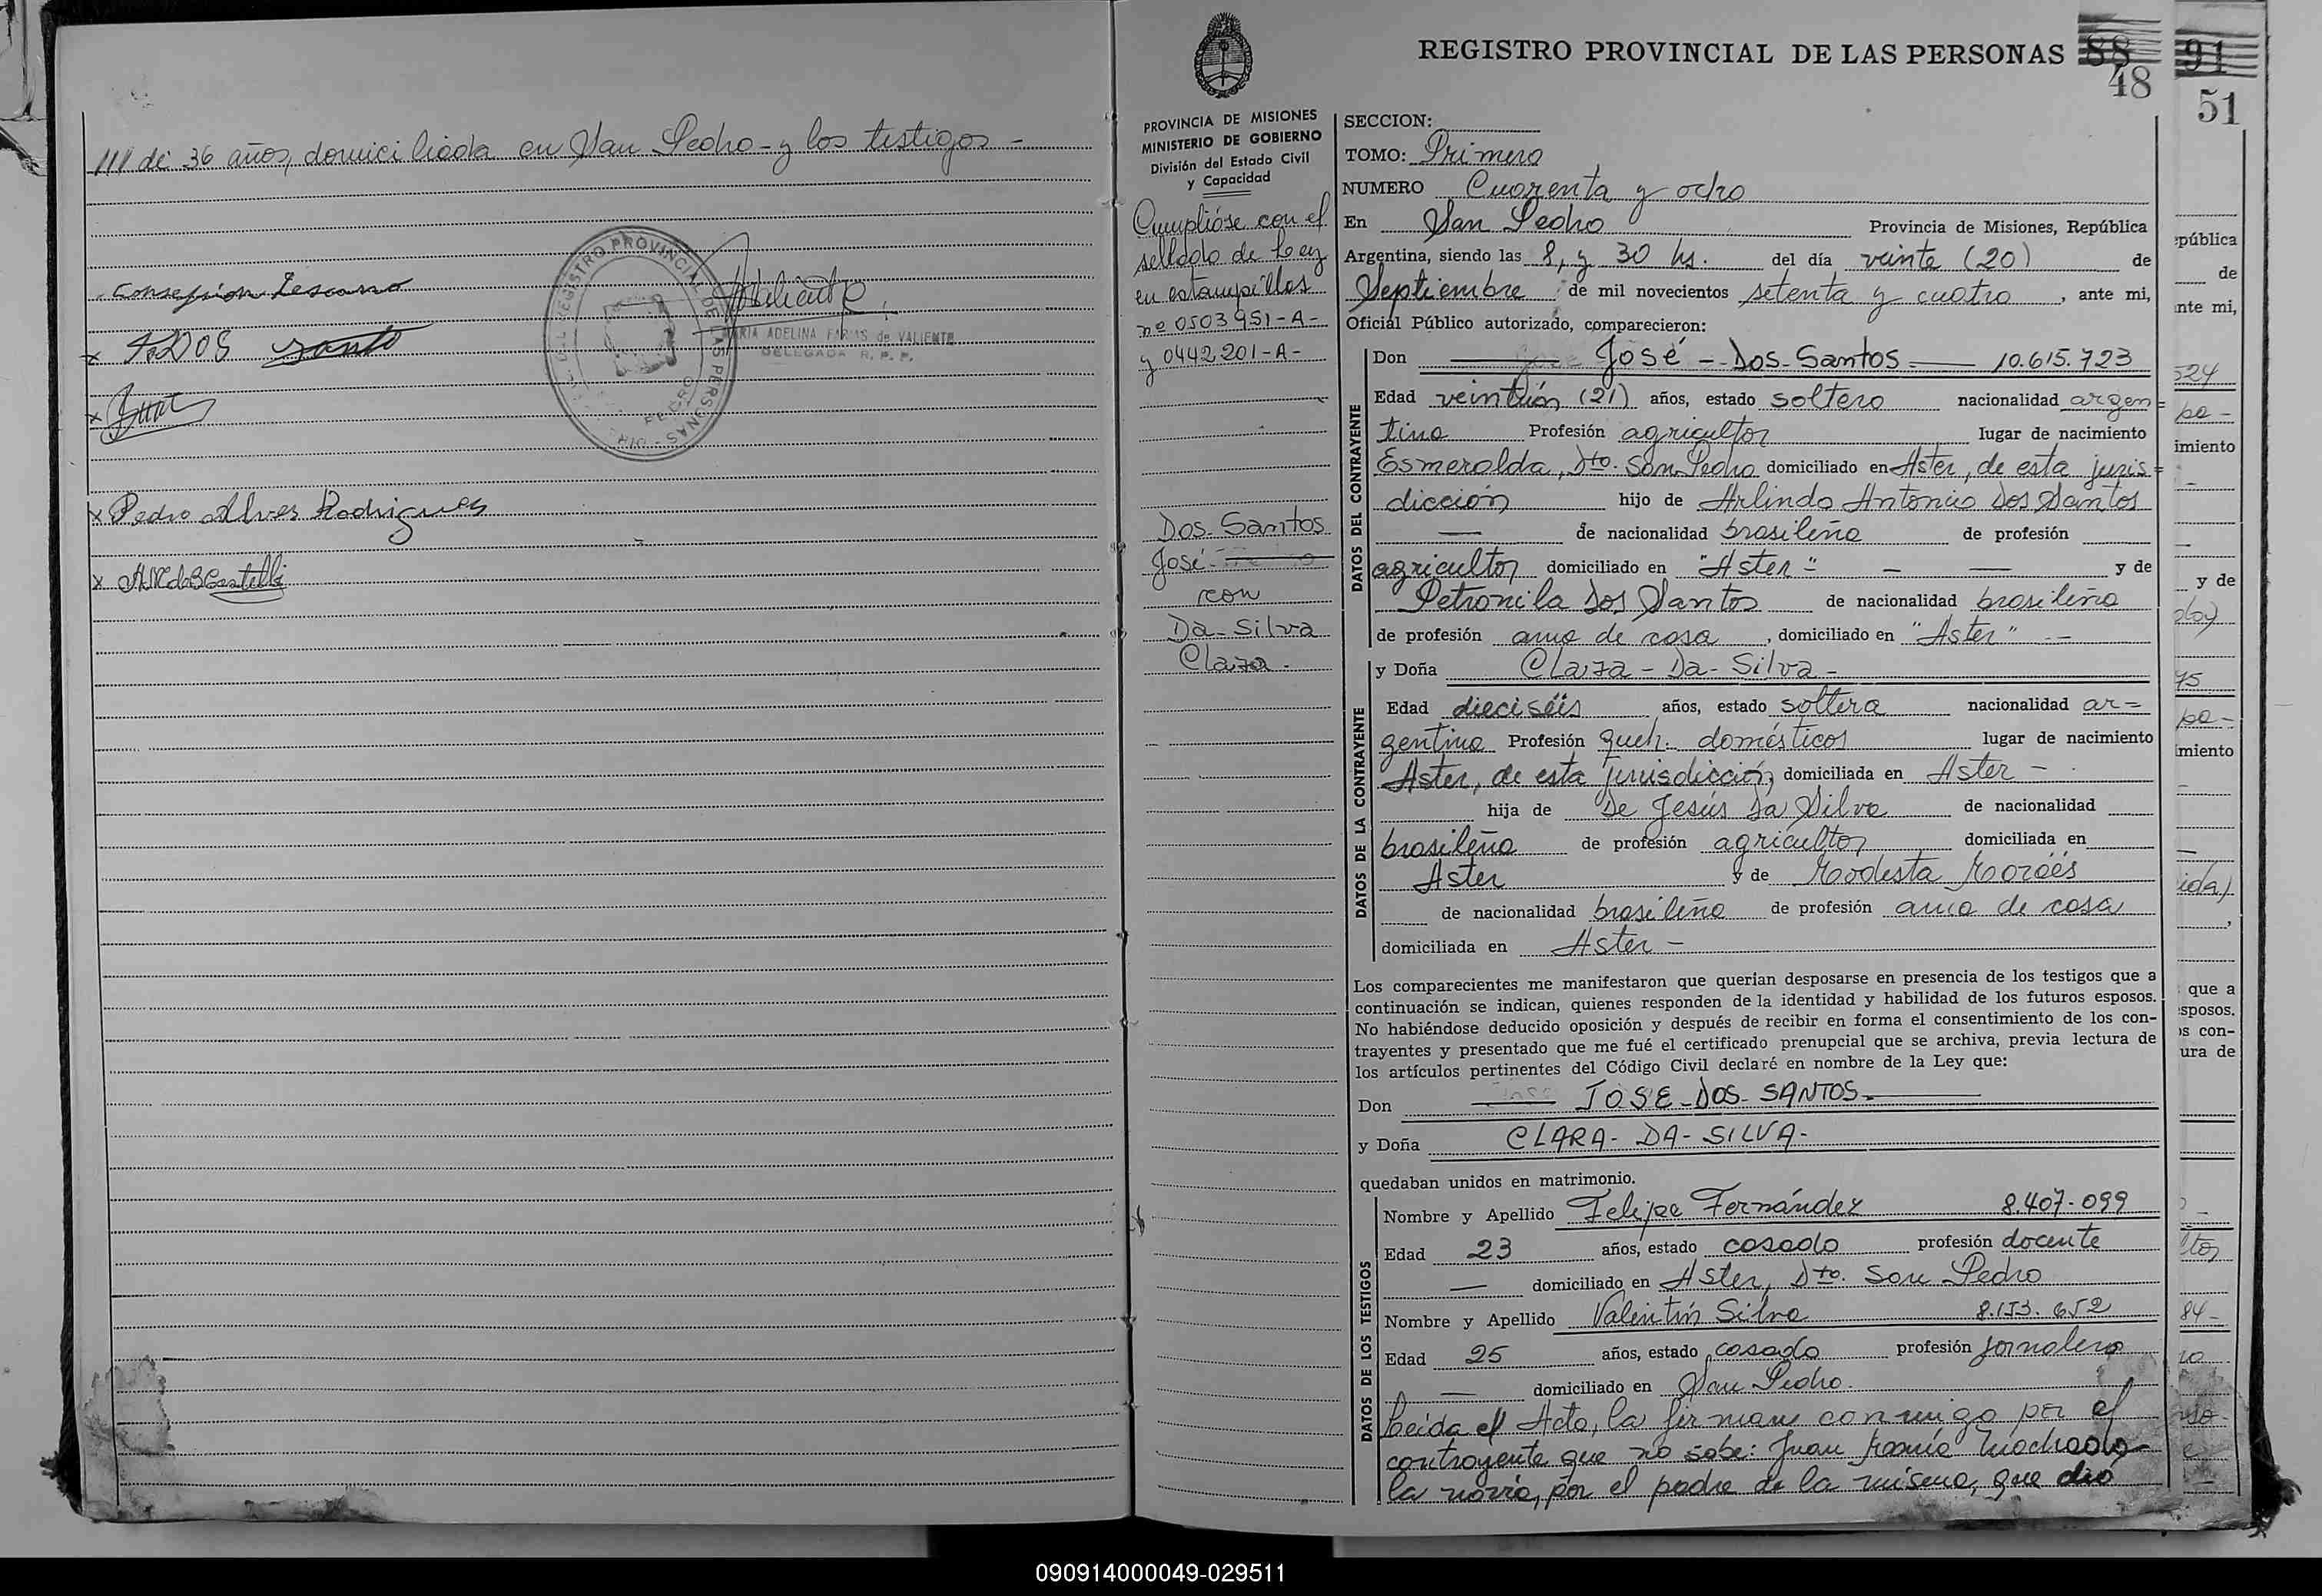 /// de 36 años, domiciliada en San Pedro - y los testigos -
Consepsion Lescano
DOS santo
Pedro Alves Rodrigues
REGISTRO PROVINCIAL DE LAS PERSONAS
MARIA ADELINA FARIAS de VALIENTE
DELEGADA R. P. P.
REGISTRO PROVINCIAL DE LAS PERSONAS
88
48
91
51
PROVINCIA DE MISIONES
MINISTERIO DE GOBIERNO
División del Estado Civil
y Capacidad
Cumplióse con el
sellado de Ley
en estampillas
nº 0503951-A-
y 0442201-A-
Dos-Santos
José
con
Da-Silva
Clara.
SECCION:
TOMO: Primero
NUMERO Cuarenta y ocho
En San Pedro Provincia de Misiones, República
Argentina, siendo las 8, y 30 hs. del día veinte (20) de
Septiembre de mil novecientos setenta y cuatro, ante mi,
Oficial Público autorizado, comparecieron:
DATOS DEL CONTRAYENTE
Don José - Dos-Santos 10.615.723
Edad veintiún (21) años, estado soltero nacionalidad argen=
tina Profesión agricultor lugar de nacimiento
Esmeralda, Dto. San Pedro domiciliado en Aster, de esta juris=
dicción hijo de Arlindo Antonio Dos Santos
— de nacionalidad brasileña de profesión
agricultor domiciliado en "Aster" - — y de
Petronila Dos Santos de nacionalidad brasileña
de profesión ama de casa, domiciliado en "Aster" --
DATOS DE LA CONTRAYENTE
y Doña Clara - Da - Silva -
Edad dieciséis años, estado soltera nacionalidad ar=
gentina Profesión queh. domésticos lugar de nacimiento
Aster, de esta jurisdicción, domiciliada en Aster -
hija de De Jesús Da Silva de nacionalidad
brasileña de profesión agricultor domiciliada en
Aster y de Modesta Moraes
de nacionalidad brasileña de profesión ama de casa
domiciliada en Aster -
Los comparecientes me manifestaron que querían desposarse en presencia de los testigos que a
continuación se indican, quienes responden de la identidad y habilidad de los futuros esposos.
No habiéndose deducido oposición y después de recibir en forma el consentimiento de los con-
trayentes y presentado que me fué el certificado prenupcial que se archiva, previa lectura de
los artículos pertinentes del Código Civil declaré en nombre de la Ley que:
Don JOSE - DOS - SANTOS.
y Doña CLARA - DA - SILVA -
quedaban unidos en matrimonio.
DATOS DE LOS TESTIGOS
Nombre y Apellido Felipe Fernández 8.407.099
Edad 23 años, estado casado profesión docente
— domiciliado en Aster, Dto. San Pedro
Nombre y Apellido Valentín Silva 8.153.652
Edad 25 años, estado casado profesión jornalero
— domiciliado en San Pedro.
Leída el Acta, la firman conmigo por el
contrayente que no sabe: Juan María Machado-
la novia, por el padre de la misma, que dió
epública
de
nte mi,
524
imiento
y de
75
imiento
que a
sposos.
s con-
ura de
84-
090914000049-029511